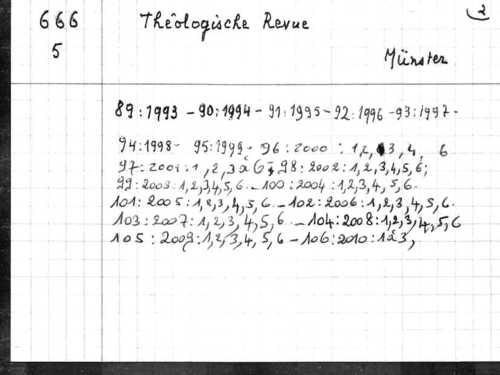 666 Théologische Revue 2
5 Münster
89:1993 - 90:1994 - 91:1995 - 92:1996 - 93:1997 -
94:1998 - 95:1999 - 96:2000 : 1,2, 3, 4, 6
97:2001:1,2,3 à 6 - 98:2002:1,2,3,4,5,6;
99:2003:1,2,3,4,5,6 - 100:2004:1,2,3,4,5,6.
101:2005:1,2,3,4,5,6 - 102:2006:1,2,3,4,5,6.
103:2007:1,2,3,4,5,6 - 104:2008:1,2,3,4,5,6
105:2009:1,2,3,4,5,6 - 106:2010:1à3,